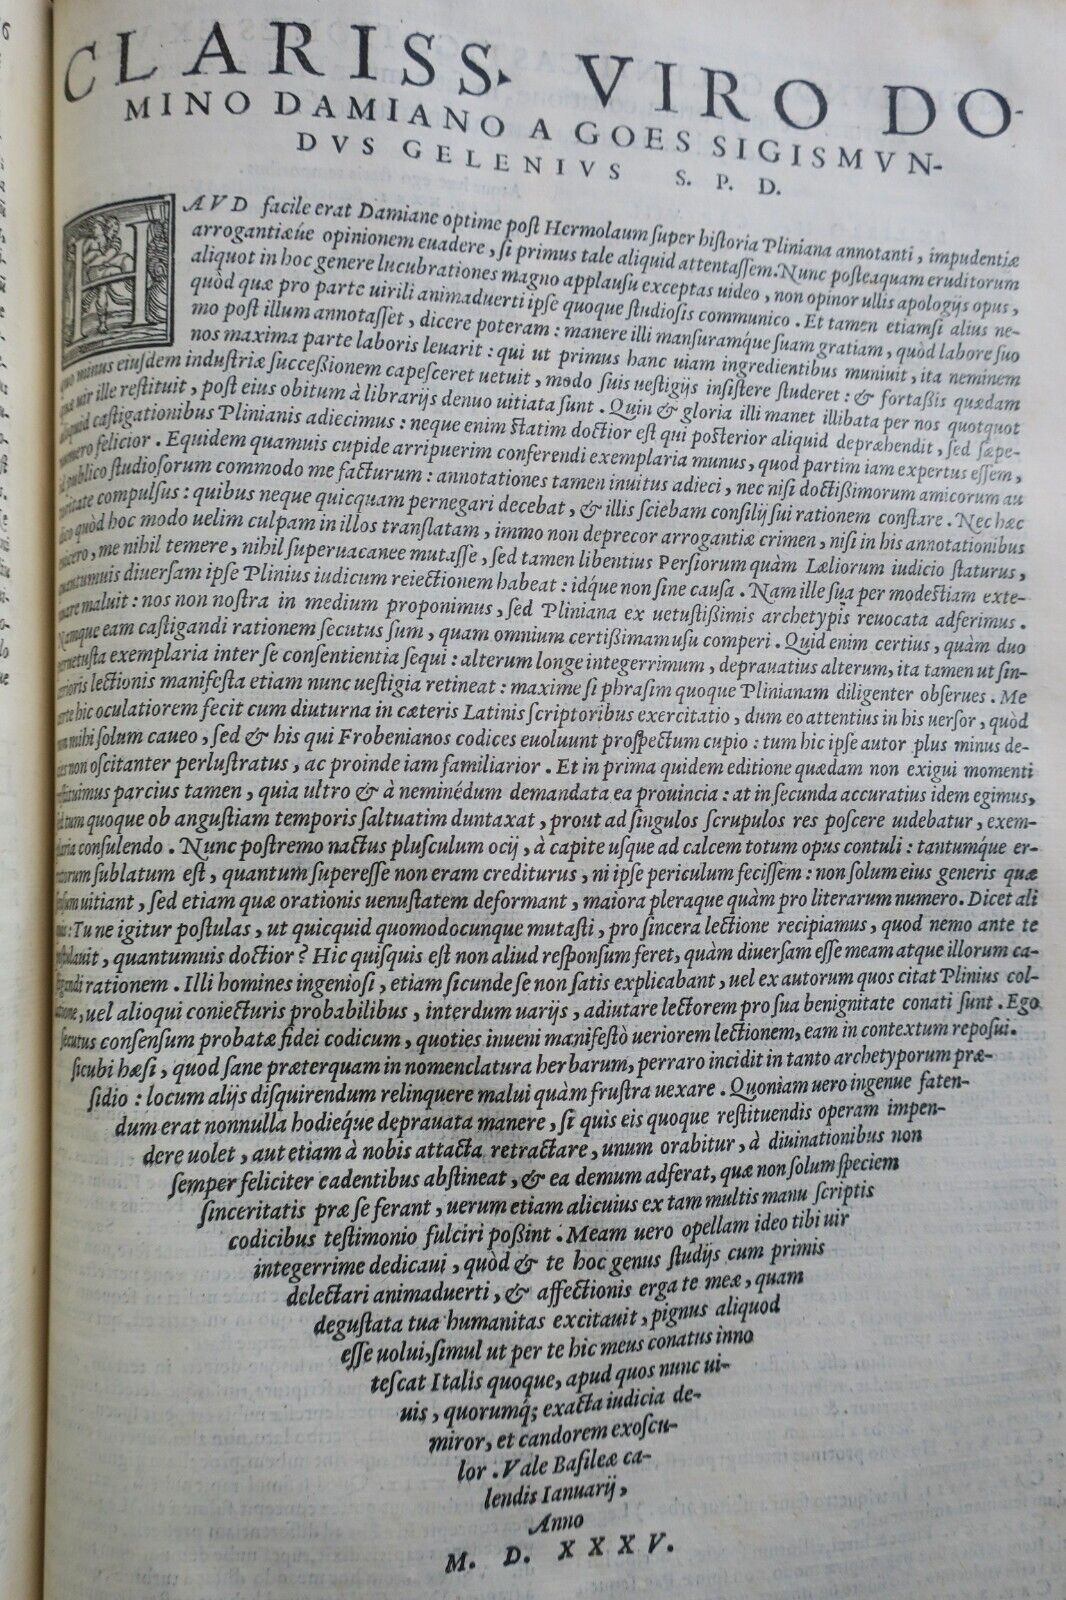 CLARISS. VIRO DO-
MINO DAMIANO A GOES SIGISMVN-
DVS GELENIVS S. P. D.
HAVD facile erat Damiane optime post Hermolaum super historia Pliniana annotanti, impudentiæ
arrogantiæúe opinionem euadere, si primus tale aliquid attentassem. Nunc posteaquam eruditorum
aliquot in hoc genere lucubrationes magno applausu exceptas uideo, non opinor ullis apologijs opus,
quòd quæ pro parte uirili animaduerti ipse quoque studiosis communico. Et tamen etiamsi alius ne-
mo post illum annotasset, dicere poteram: manere illi mansuramque suam gratiam, quòd labore suo
nos maxima parte laboris leuarit: qui ut primus hanc uiam ingredientibus muniuit, ita neminem
quo minus eiusdem industriæ successionem capesceret uetuit, modo suis uestigijs insistere studeret: & fortaßis quædam
quæ uir ille restituit, post eius obitum à librarijs denuo uitiata sunt. Quin & gloria illi manet illibata per nos quotquot
aliquid castigationibus Plinianis adiecimus: neque enim statim doctior est qui posterior aliquid depræhendit, sed sæpe-
numero felicior. Equidem quamuis cupide arripuerim conferendi exemplaria munus, quod partim iam expertus essem,
id publico studiosorum commodo me facturum: annotationes tamen inuitus adieci, nec nisi doctißimorum amicorum au
toritate compulsus: quibus neque quicquam pernegari decebat, & illis sciebam consilij sui rationem constare. Nec hæc
dico quòd hoc modo uelim culpam in illos translatam, immo non deprecor arrogantiæ crimen, nisi in his annotationibus
me nihil temere, nihil superuacanee mutasse, sed tamen libentius Persiorum quàm Læliorum iudicio staturus,
quantumuis diuersam ipse Plinius iudicum reiectionem habeat: idq́ue non sine causa. Nam ille sua per modestiam exte-
nuare maluit: nos non nostra in medium proponimus, sed Pliniana ex uetustißimis archetypis reuocata adferimus.
Namque eam castigandi rationem secutus sum, quam omnium certißimam usu comperi. Quid enim certius, quàm duo
peruetusta exemplaria inter se consentientia sequi: alterum longe integerrimum, deprauatius alterum, ita tamen ut sin-
cerioris lectionis manifesta etiam nunc uestigia retineat: maxime si phrasim quoque Plinianam diligenter obserues. Me
certe hic oculatiorem fecit cum diuturna in cæteris Latinis scriptoribus exercitatio, dum eo attentius in his uersor, quòd
non mihi solum caueo, sed & his qui Frobenianos codices euoluunt prospectum cupio: tum hic ipse autor plus minus de-
cies non oscitanter perlustratus, ac proinde iam familiarior. Et in prima quidem editione quædam non exigui momenti
restituimus parcius tamen, quia ultro & à neminédum demandata ea prouincia: at in secunda accuratius idem egimus,
sed tum quoque ob angustiam temporis saltuatim duntaxat, prout ad singulos scrupulos res poscere uidebatur, exem-
plaria consulendo. Nunc postremo nactus plusculum ocij, à capite usque ad calcem totum opus contuli: tantumque er-
ratorum sublatum est, quantum superesse non eram crediturus, ni ipse periculum fecissem: non solum eius generis quæ
sensum uitiant, sed etiam quæ orationis uenustatem deformant, maiora pleraque quàm pro literarum numero. Dicet ali
quis: Tu ne igitur postulas, ut quicquid quomodocunque mutasti, pro sincera lectione recipiamus, quod nemo ante te
postulauit, quantumuis doctior? Hic quisquis est non aliud responsum feret, quàm diuersam esse meam atque illorum ca-
stigandi rationem. Illi homines ingeniosi, etiam sicunde se non satis explicabant, uel ex autorum quos citat Plinius col-
latione, uel alioqui coniecturis probabilibus, interdum uarijs, adiutare lectorem pro sua benignitate conati sunt. Ego
secutus consensum probatæ fidei codicum, quoties inueni manifestò ueriorem lectionem, eam in contextum reposui.
sicubi hæsi, quod sane præterquam in nomenclatura herbarum, perraro incidit in tanto archetyporum præ-
sidio: locum alijs disquirendum relinquere malui quàm frustra uexare. Quoniam uero ingenue faten-
dum erat nonnulla hodieq́ue deprauata manere, si quis eis quoque restituendis operam impen-
dere uolet, aut etiam à nobis attacta retractare, unum orabitur, à diuinationibus non
semper feliciter cadentibus abstineat, & ea demum adferat, quæ non solum speciem
sinceritatis præ se ferant, uerum etiam alicuius ex tam multis manu scriptis
codicibus testimonio fulciri poßint. Meam uero opellam ideo tibi uir
integerrime dedicaui, quòd & te hoc genus studijs cum primis
delectari animaduerti, & affectionis erga te meæ, quam
degustata tua humanitas excitauit, pignus aliquod
esse uolui, simul ut per te hic meus conatus inno
tescat Italis quoque, apud quos nunc ui-
uis, quorumq́; exacta iudicia de-
miror, et candorem exoscu-
lor. Vale Basileæ ca-
lendis Ianuarij,
Anno
M. D. XXXV.